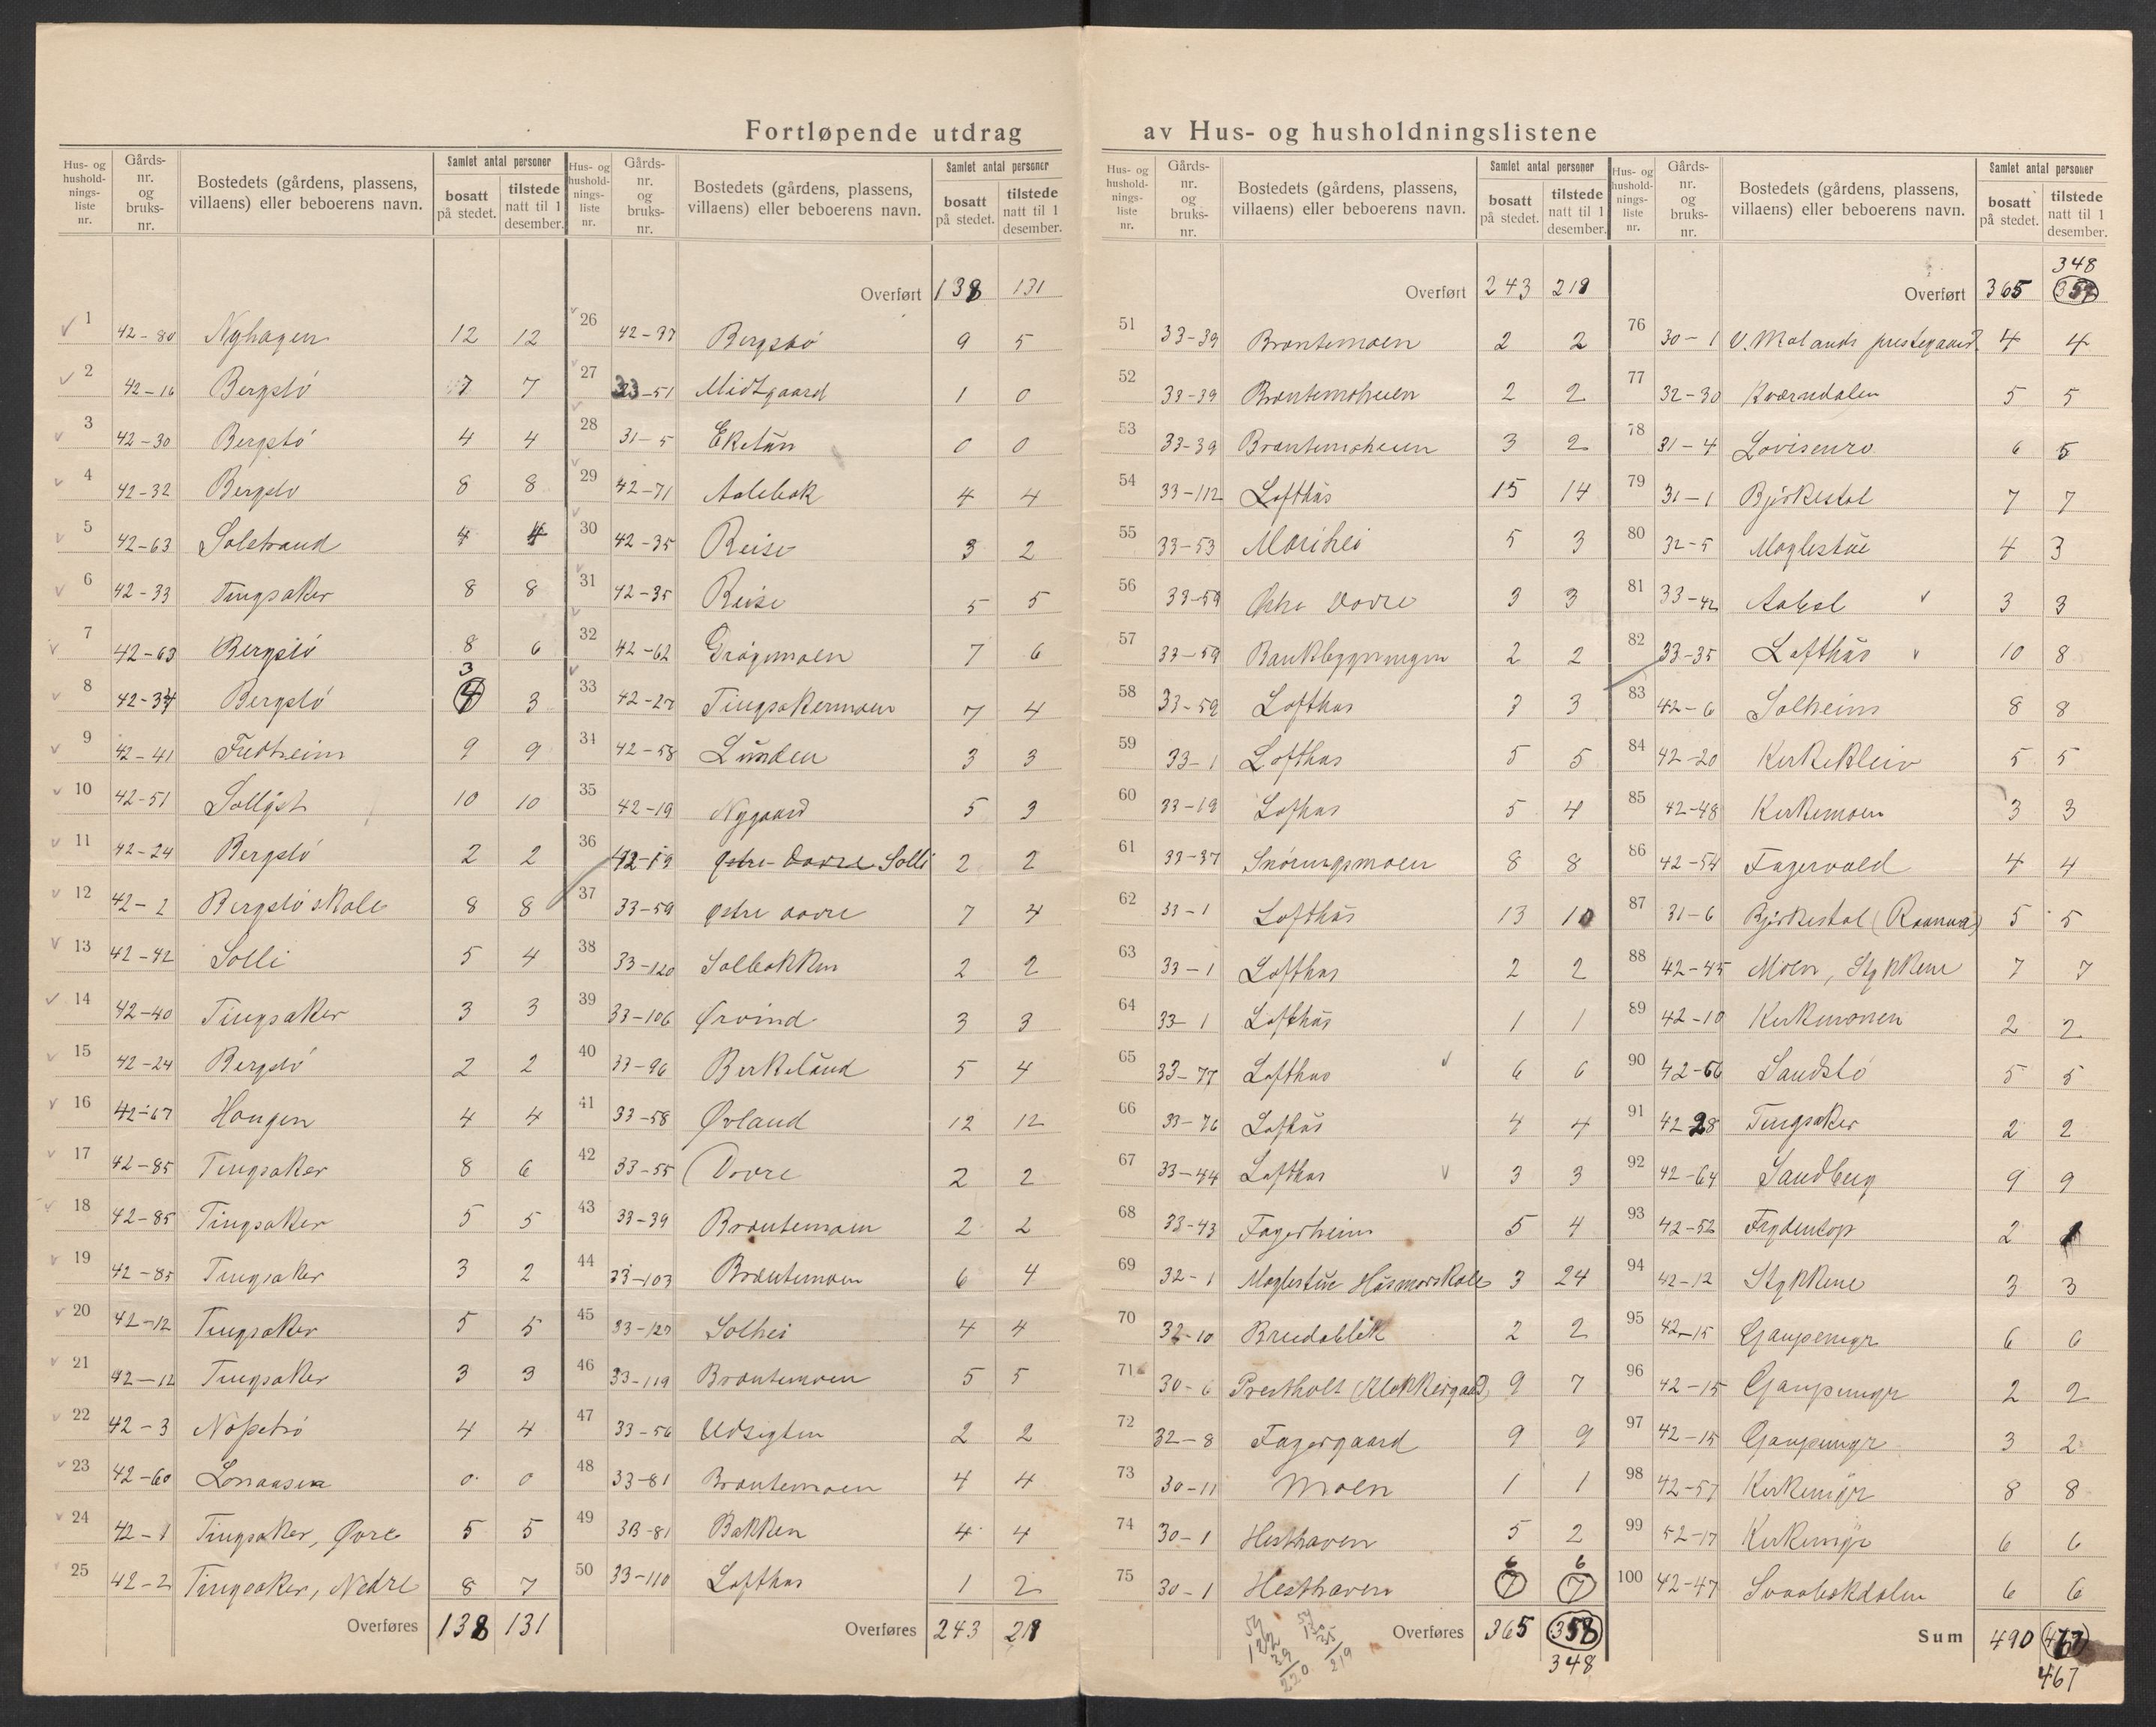 Fortløpende utdrag av Hus- og husholdningslistene
Hus- og husholdningsliste nr. | Gårds-nr. og bruks-nr. | Bostedets (gårdens, plassens, villaens) eller beboerens navn. | Samlet antal personer | bosatt på stedet. | tilstede natt til 1 desember.
1 42-80 Nyhagen 12 12
2 42-16 Bergstö 7 7
3 42-30 Bergstö 4 4
4 42-32 Bergstö 8 8
5 42-63 Solstrand 4 4
6 42-33 Tingsaker 8 8
7 42-63 Bergstö 8 6
8 42-34 Bergstö 3 (4) 3
9 42-41 Fredheim 9 9
10 42-51 Sollyst 10 10
11 42-24 Bergstö 2 2
12 42-2 Bergstö skole 8 8
13 42-42 Solli 5 4
14 42-40 Tingsaker 3 3
15 42-24 Bergstö 2 2
16 42-67 Haugen 4 4
17 42-85 Tingsaker 8 6
18 42-85 Tingsaker 5 5
19 42-85 Tingsaker 3 2
20 42-12 Tingsaker 5 5
21 42-12 Tingsaker 3 3
22 42-3 4 4
23 42-60 0 0
24 42-1 Tingsaker, Øvre 5 5
25 42-2 Tingsaker, Nedre 8 7
Overføres 138 131
Hus- og husholdningsliste nr. | Gårds-nr. og bruks-nr. | Bostedets (gårdens, plassens, villaens) eller beboerens navn. | Samlet antal personer | bosatt på stedet. | tilstede natt til 1 desember.
Overført 138 131
26 42-37 Bergstö 9 5
27 33-51 Midtgaard 1 0
28 31-5 Eketun 0 0
29 42-71 Aalebæk 4 4
30 42-35 Reise 3 2
31 42-35 Reise 5 5
32 42-62 Grögemoen 7 6
33 42-27 Tingsakermoen 7 4
34 42-58 Lunden 3 3
35 42-19 Nygaard 5 3
36 42-19 Østre Dovre Solli 2 2
37 33-59 Østre Dovre 7 4
38 33-120 Solbakken 2 2
39 33-106 Ørvind 3 3
40 33-96 Berkeland 5 4
41 33-58 Øvland 12 12
42 33-55 Dovre 2 2
43 33-39 Brøntemoen 2 2
44 33-103 Brøntemoen 6 4
45 33-127 Solhei 4 4
46 33-119 Brøntemoen 5 5
47 33-56 Udsigten 2 2
48 33-81 Brøntemoen 4 4
49 33-81 Bakken 4 4
50 33-110 Lofthus 1 2
Overføres 243 218
Hus- og husholdningsliste nr. | Gårds-nr. og bruks-nr. | Bostedets (gårdens, plassens, villaens) eller beboerens navn. | Samlet antal personer | bosatt på stedet. | tilstede natt til 1 desember.
Overført 243 218
51 33-39 Brøntemoen 2 2
52 33-39 Brøntemoheien 2 2
53 33-39 Brøntemoheien 3 2
54 33-112 Lofthus 15 14
55 33-53 Marihei 5 3
56 33-59 Østre Dovre 3 3
57 33-59 Bankbygningen 2 2
58 33-59 Lofthus 3 3
59 33-1 Lofthus 5 5
60 33-19 Lofhus 5 4
61 33-37 Snøringsmoen 8 8
62 33-1 Lofthus 13 10
63 33-1 Lofthus 2 2
64 33-1 Lofthus 1 1
65 33-77 Lofthus 6 6
66 33-76 Lofthus 4 4
67 33-44 Lofthus 3 3
68 33-43 Fagerheim 5 4
69 32-1 Moglestue Husmorskole 3 24
70 32-10 Breidablik 2 2
71 30-6 Prestholt (Klokkergaard) 9 7
72 32-8 Fagergaard 9 9
73 30-11 Moen 1 1
74 30-1 Hesthaven 5 2
75 30-1 Hesthaven 6 (7) 6 (7)
Overføres 365 (358)
348
Hus- og husholdningsliste nr. | Gårds-nr. og bruks-nr. | Bostedets (gårdens, plassens, villaens) eller beboerens navn. | Samlet antal personer | bosatt på stedet. | tilstede natt til 1 desember.
348
Overført 365 (358)
76 30-1 V. Molands prestegaard 4 4
77 32-30 Kværndalen 5 5
78 31-4 Lovisenro 6 5
79 31-1 Bjørkestøl 7 7
80 32-5 Moglestue 4 3
81 33-42 3 3
82 33-35 Lofthus 10 8
83 42-6 Solheim 8 8
84 42-20 Kirkekleiv 5 5
85 42-48 Kirkemoen 3 3
86 42-54 Fagervold 4 4
87 31-6 Bjørkestøl (Raanaa) 5 5
88 42-45 Moen, Stykkene 7 7
89 42-10 Kirkemoen 2 2
90 42-66 Sandstö 5 5
91 42-28 Tingsaker 2 2
92 42-64 Sandberg 9 9
93 42-52 Frydentop 2 1
94 42-12 Stykkene 3 3
95 42-15 Gaupemyr 6 6
96 42-15 Gaupemyr 2 2
97 42-15 Gaupemyr 3 2
98 42-57 Kirkemyr 8 8
99 52-17 Kirkemyr 6 6
100 42-47 Svaabekdalen 6 6
Sum 490 (467)
467